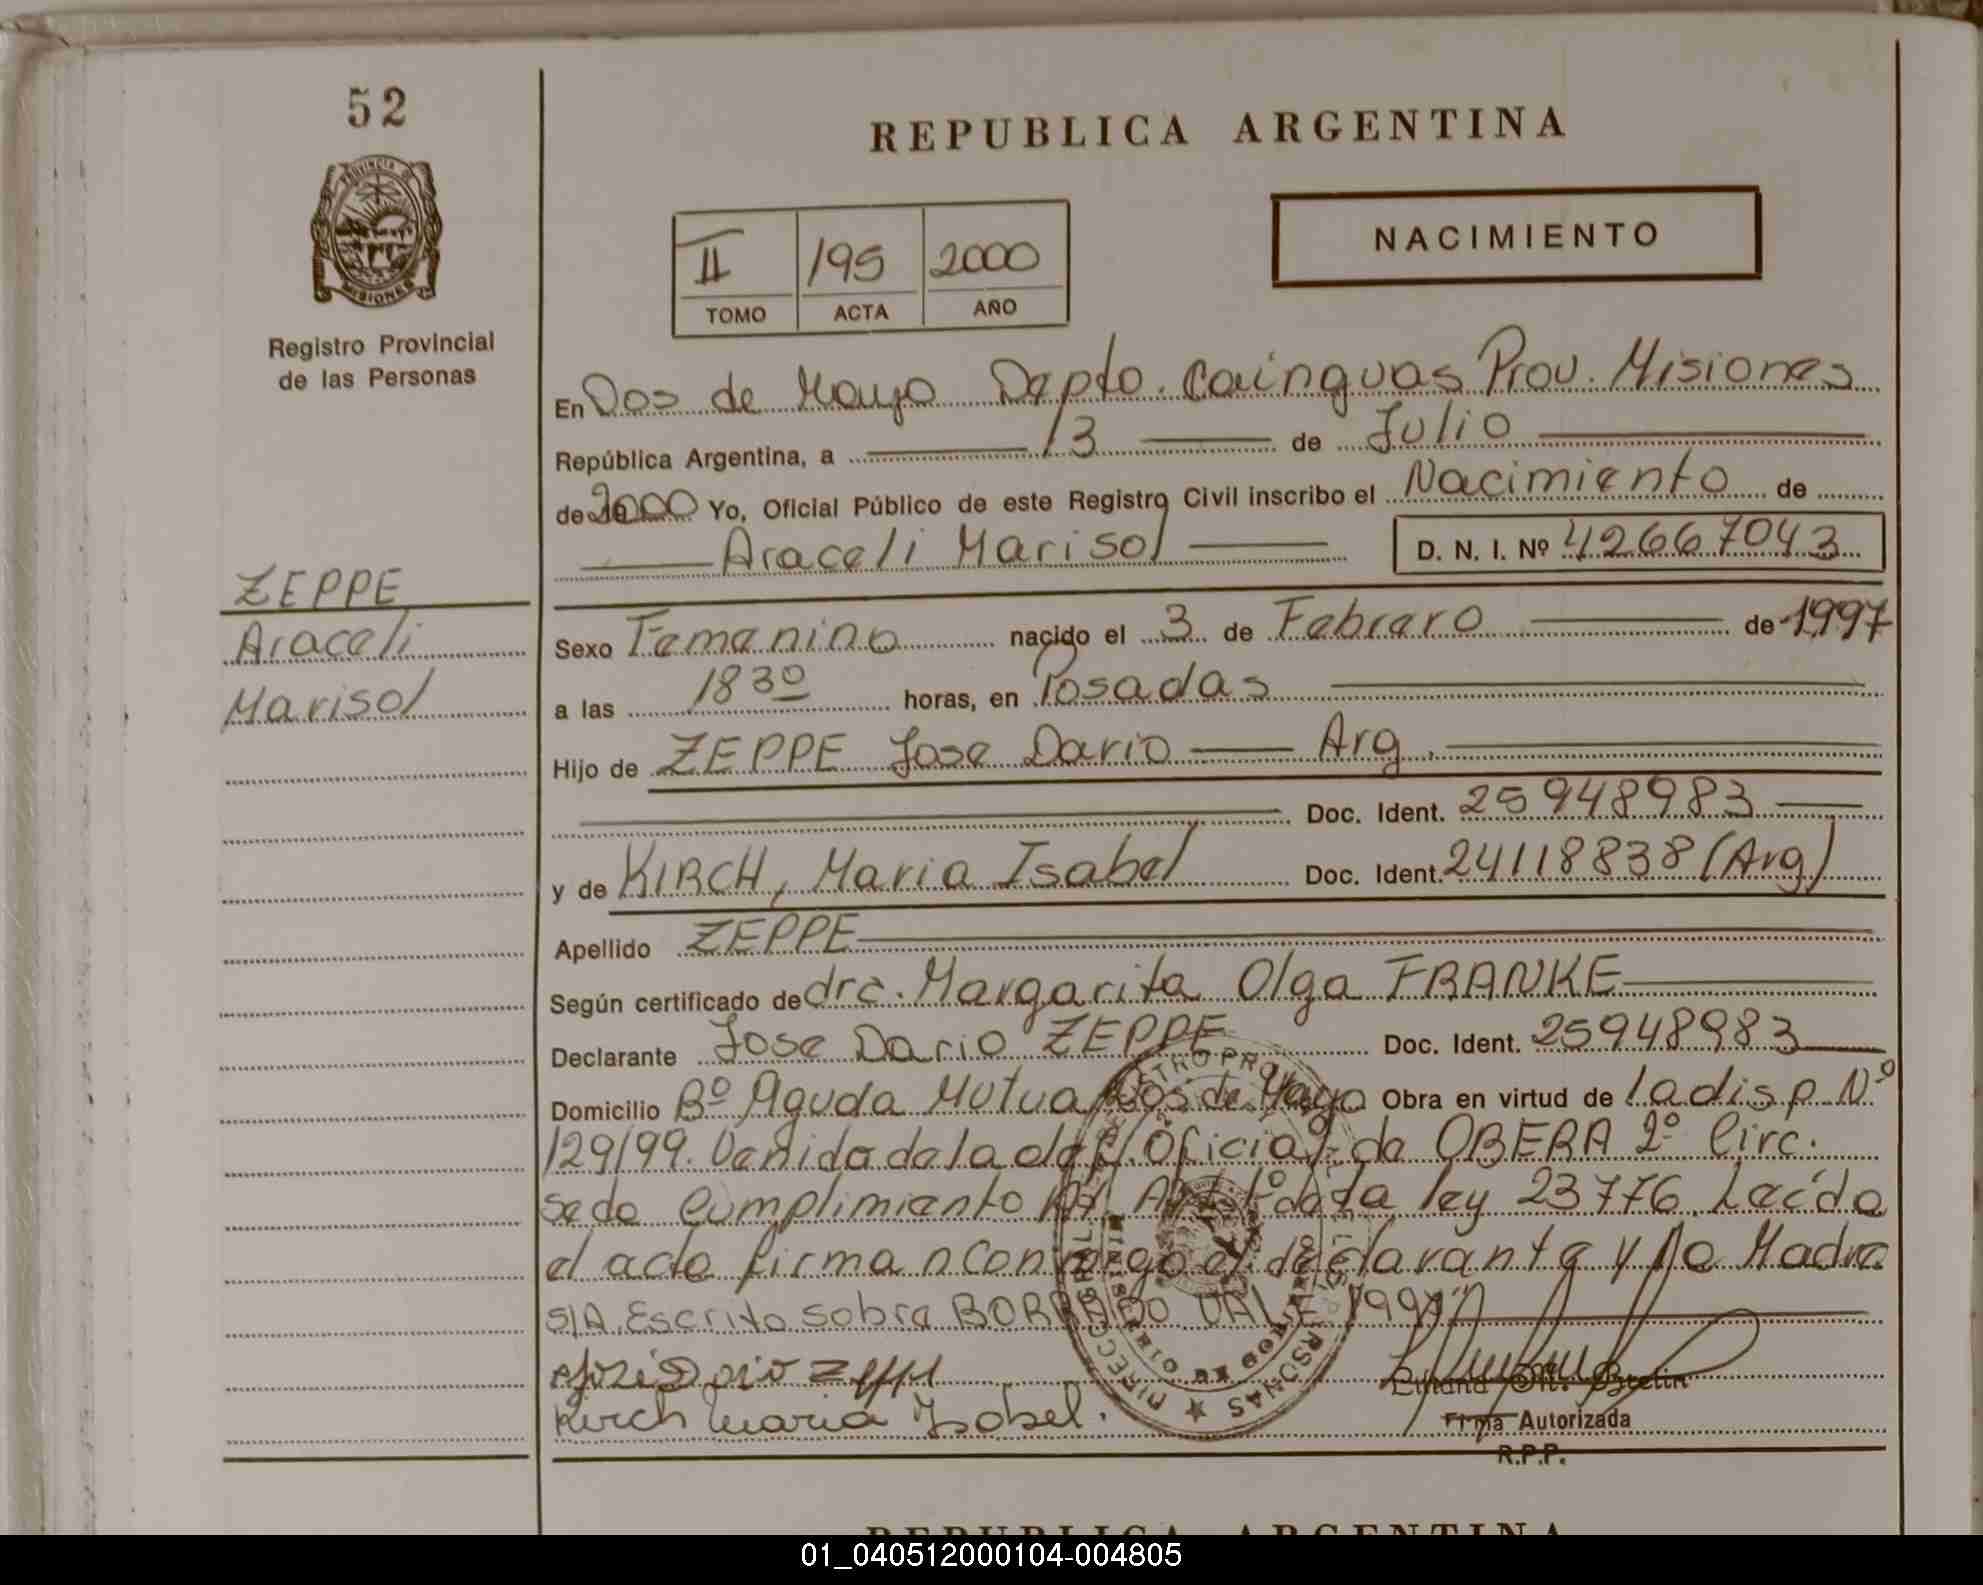 52
PROVINCIA DE
MISIONES
Registro Provincial
de las Personas
ZEPPE
Araceli
Marisol
REPUBLICA ARGENTINA
II 195 2000
TOMO ACTA AÑO
NACIMIENTO
En Dos de Mayo Depto. Cainguas Prov. Misiones
República Argentina, a 13 de Julio
de 2000 Yo, Oficial Público de este Registro Civil inscribo el Nacimiento de
Araceli Marisol D. N. I. Nº 42667043
Sexo Femenino nacido el 3 de Febrero de 1997
a las 18 30 horas, en Posadas
Hijo de ZEPPE Jose Dario Arg.
Doc. Ident. 25948983
y de KIRCH, Maria Isabel Doc. Ident. 24118838 (Arg)
Apellido ZEPPE
Según certificado de dra. Margarita Olga FRANKE
Declarante Jose Dario ZEPPE Doc. Ident. 25948983
Domicilio Bº Ayuda Mutua Dos de Mayo Obra en virtud de la disp Nº
129/99. Venida de la Oficial de OBERA 2º Circ.
se da Cumplimiento Art 1º de la ley 23776. Leida
el acta firman conmigo el declarante y la Madre
S/A. Escrito sobre BORRADO VALE "1997"
Jose Dario Zeppe
Kirch Maria Isabel.
Firma Autorizada
R.P.P.
REPUBLICA ARGENTINA
01_040512000104-004805